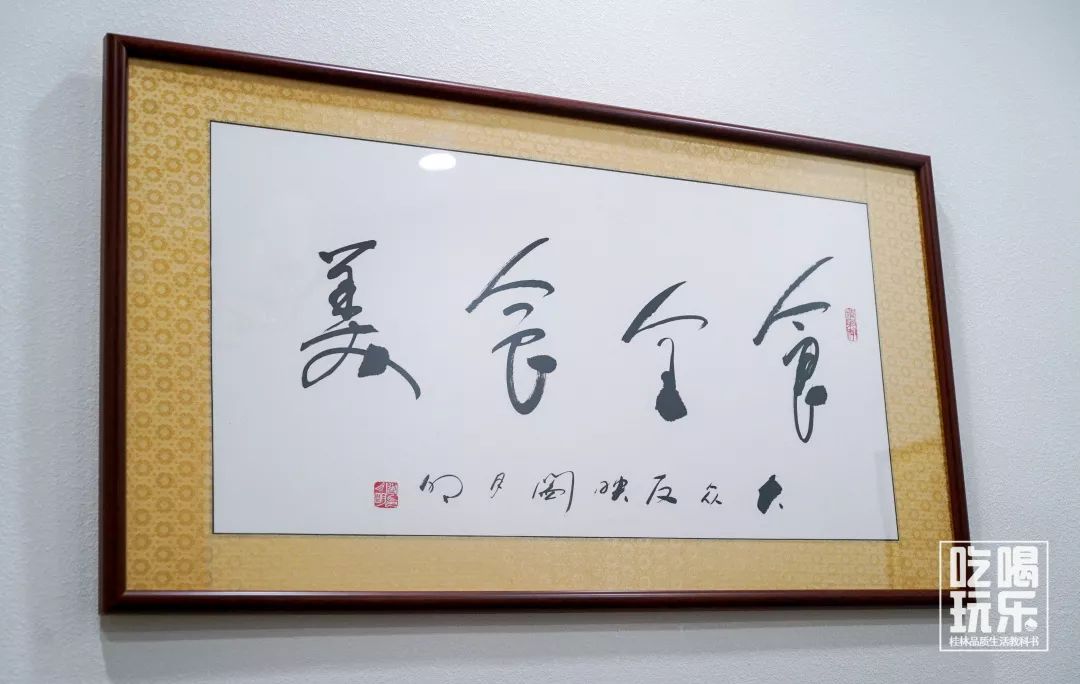 食全食美
大众反映阁月明
吃喝
玩乐
桂林品质生活教科书